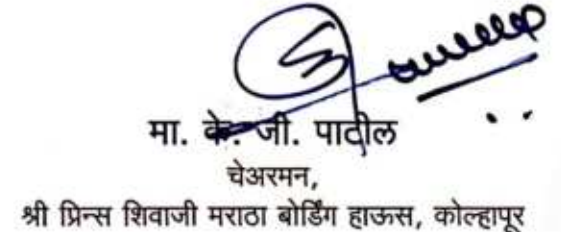 मा. के. जी. पाटील
चेअरमन,
श्री प्रिन्स शिवाजी मराठा बोर्डिंग हाऊस, कोल्हापूर